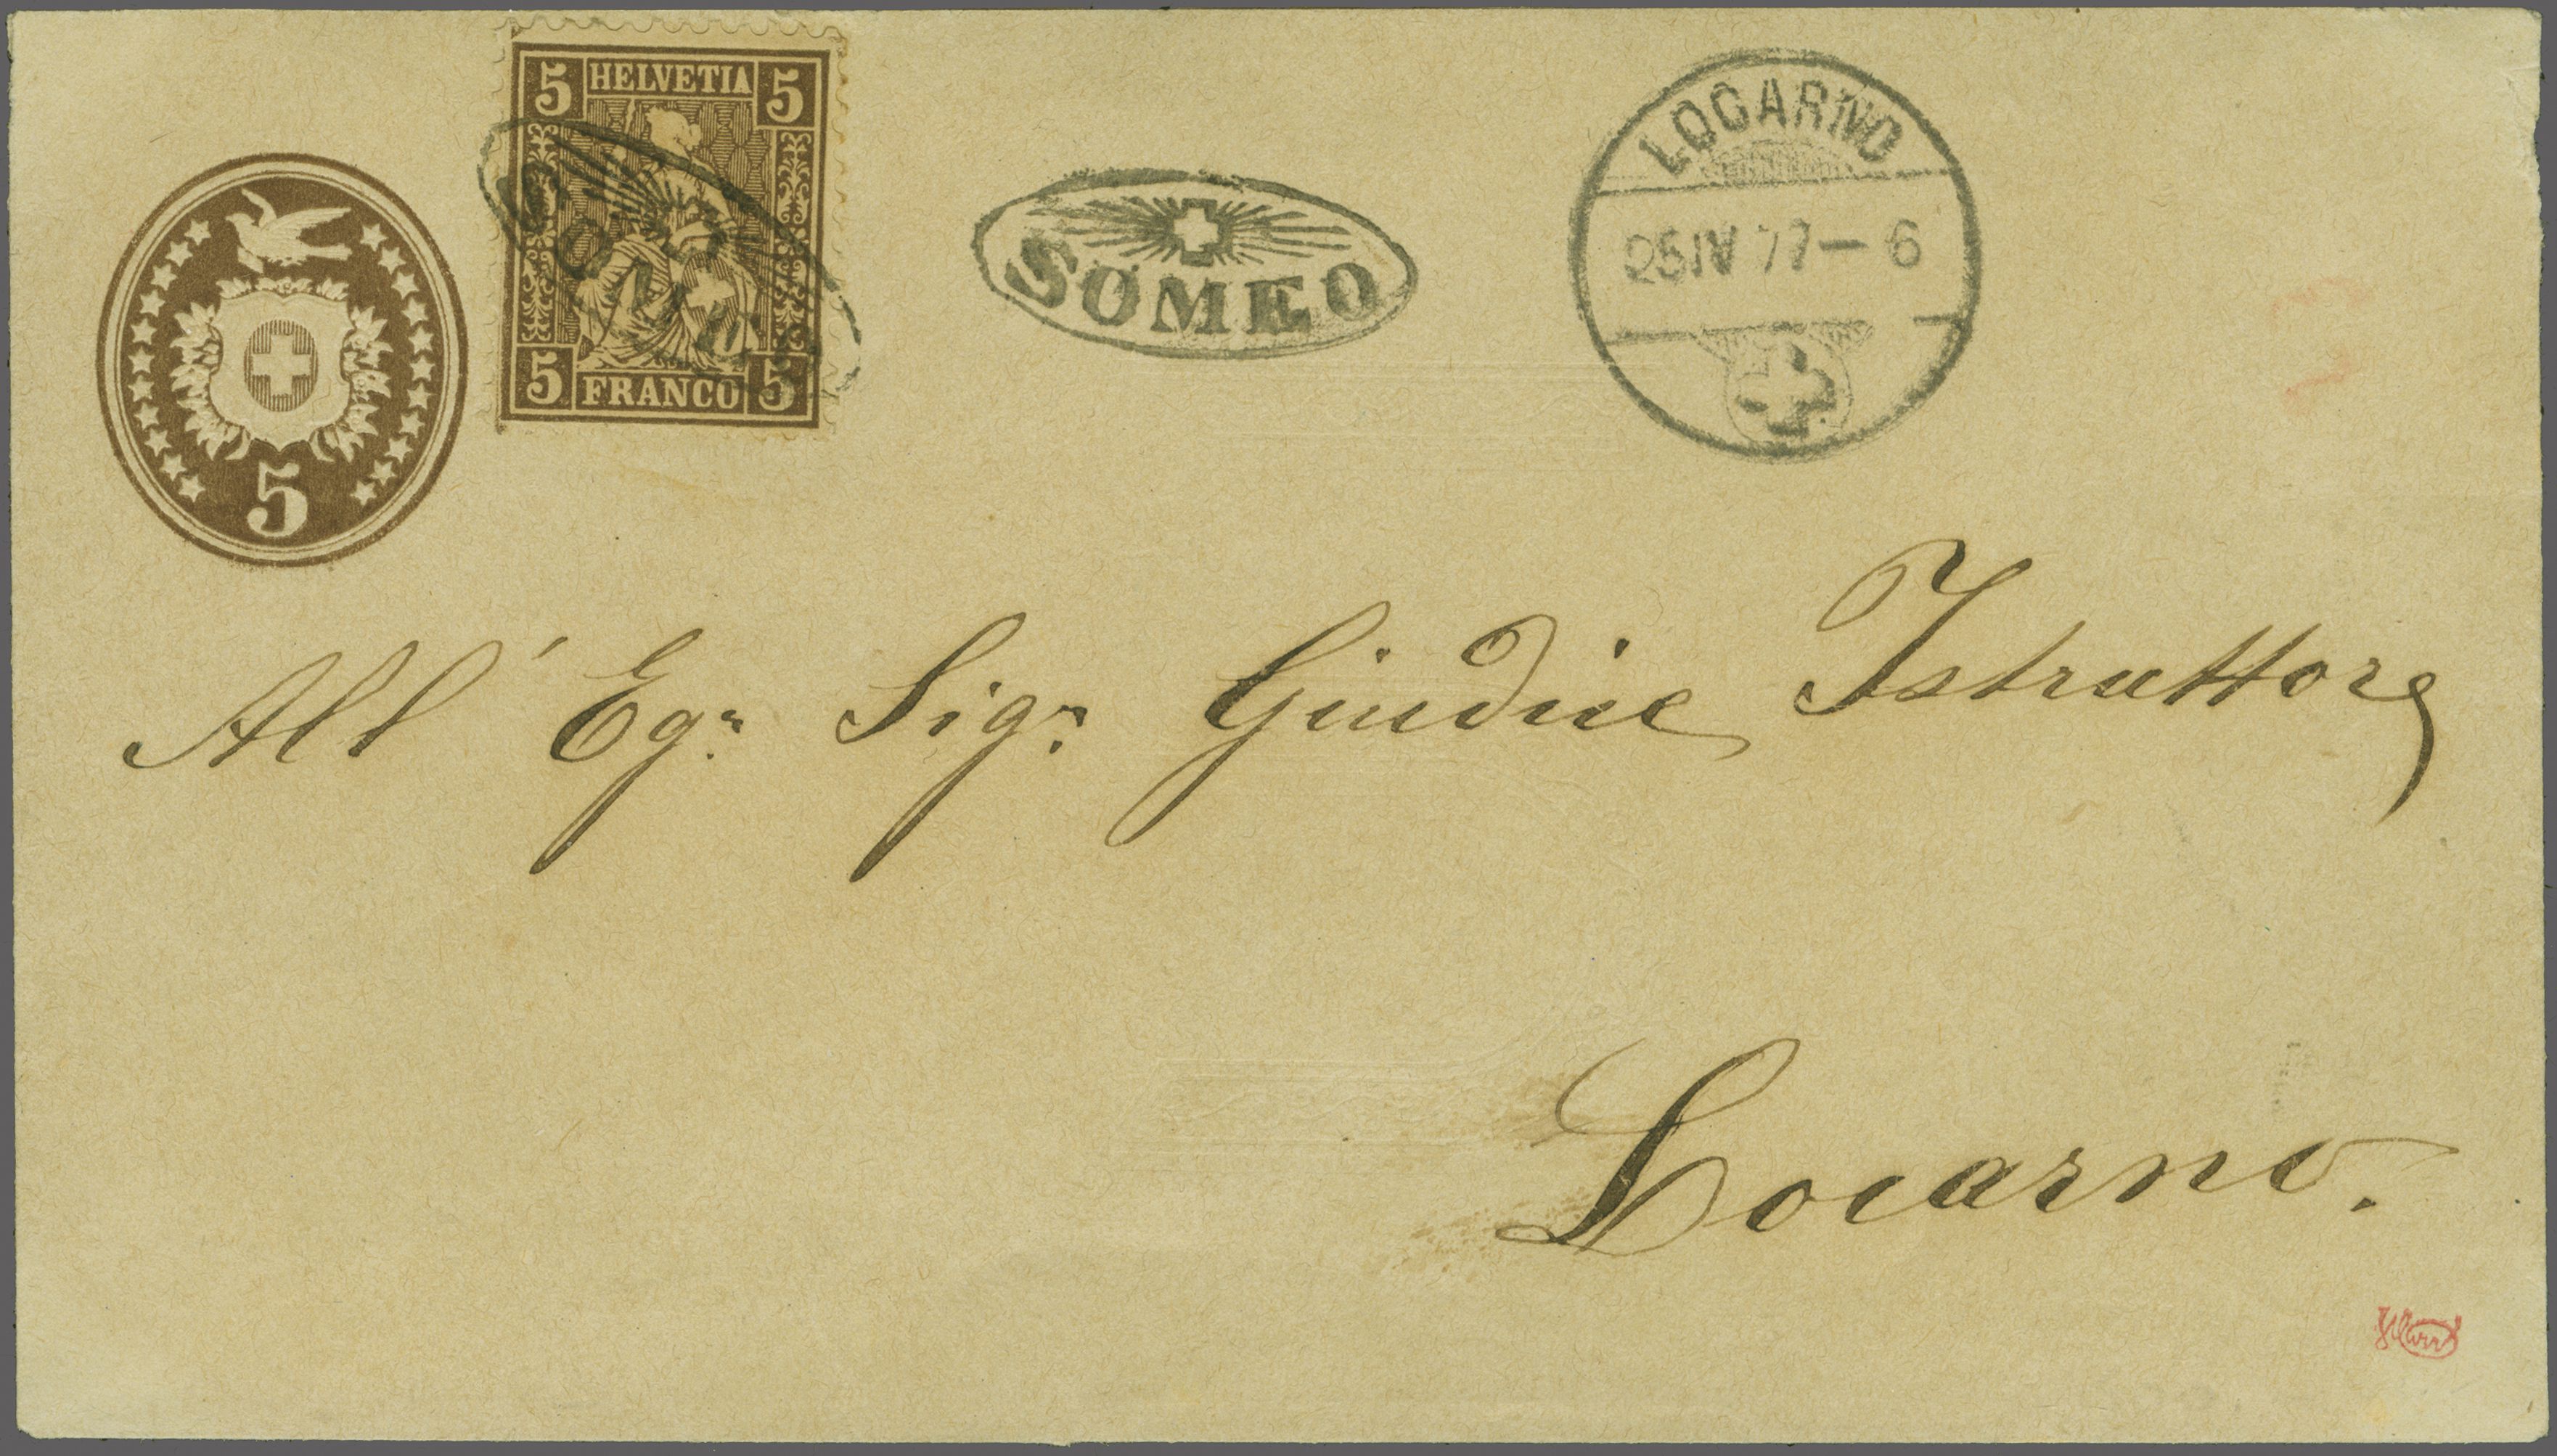 5 HELVETIA 5
5 FRANCO 5
5
SOMEO
SOMEO
LOCARNO
25 IV 77 – 6
All' Egr. Sigr. Giudice Istruttore
Locarno.